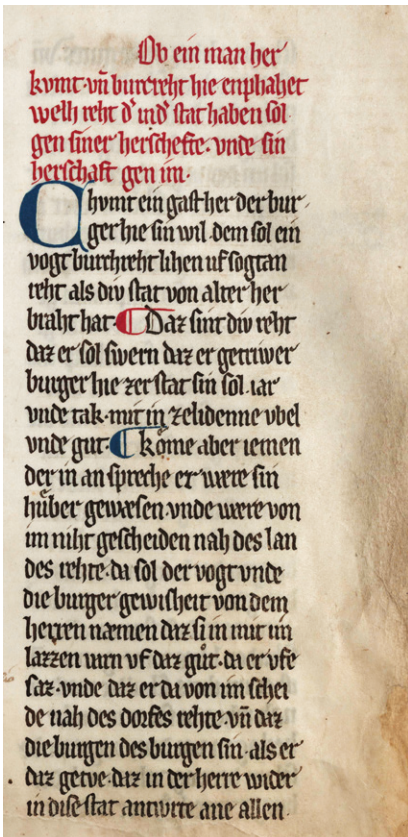 Ob ein man her
kvmt. vñ burcreht hie enphahet
welh reht d᾽ ind᾽ stat haben sol
gen siner herschefte. vnde sin
herschaft gen im.
Chvmt ein gast her der bur
ger hie sin wil. dem sol ein
vogt burchreht lihen uf sogtan
reht als div stat von alter her
braht hat. Daz sint div reht
daz er sol swern daz er getriwer
burger hie zer stat sin sol. iar
vnde tak. mit in zelidenne vbel
vnde gut. kome aber iemen
der in an spreche er wære sin
hůber gewæsen. vnde wære von
im niht gescheiden nah des lan
des rehte. da sol der vogt vnde
die burger gewisheit von dem
herren næmen daz si in mit im
lazzen varn vf daz gůt. da er vfe
saz. vnde daz er da von im schei
de nah des dorfes rehte. vñ daz
die burgen des burgen sin. als er
daz getve. daz in der herre wider
in dise stat antwrte ane allen